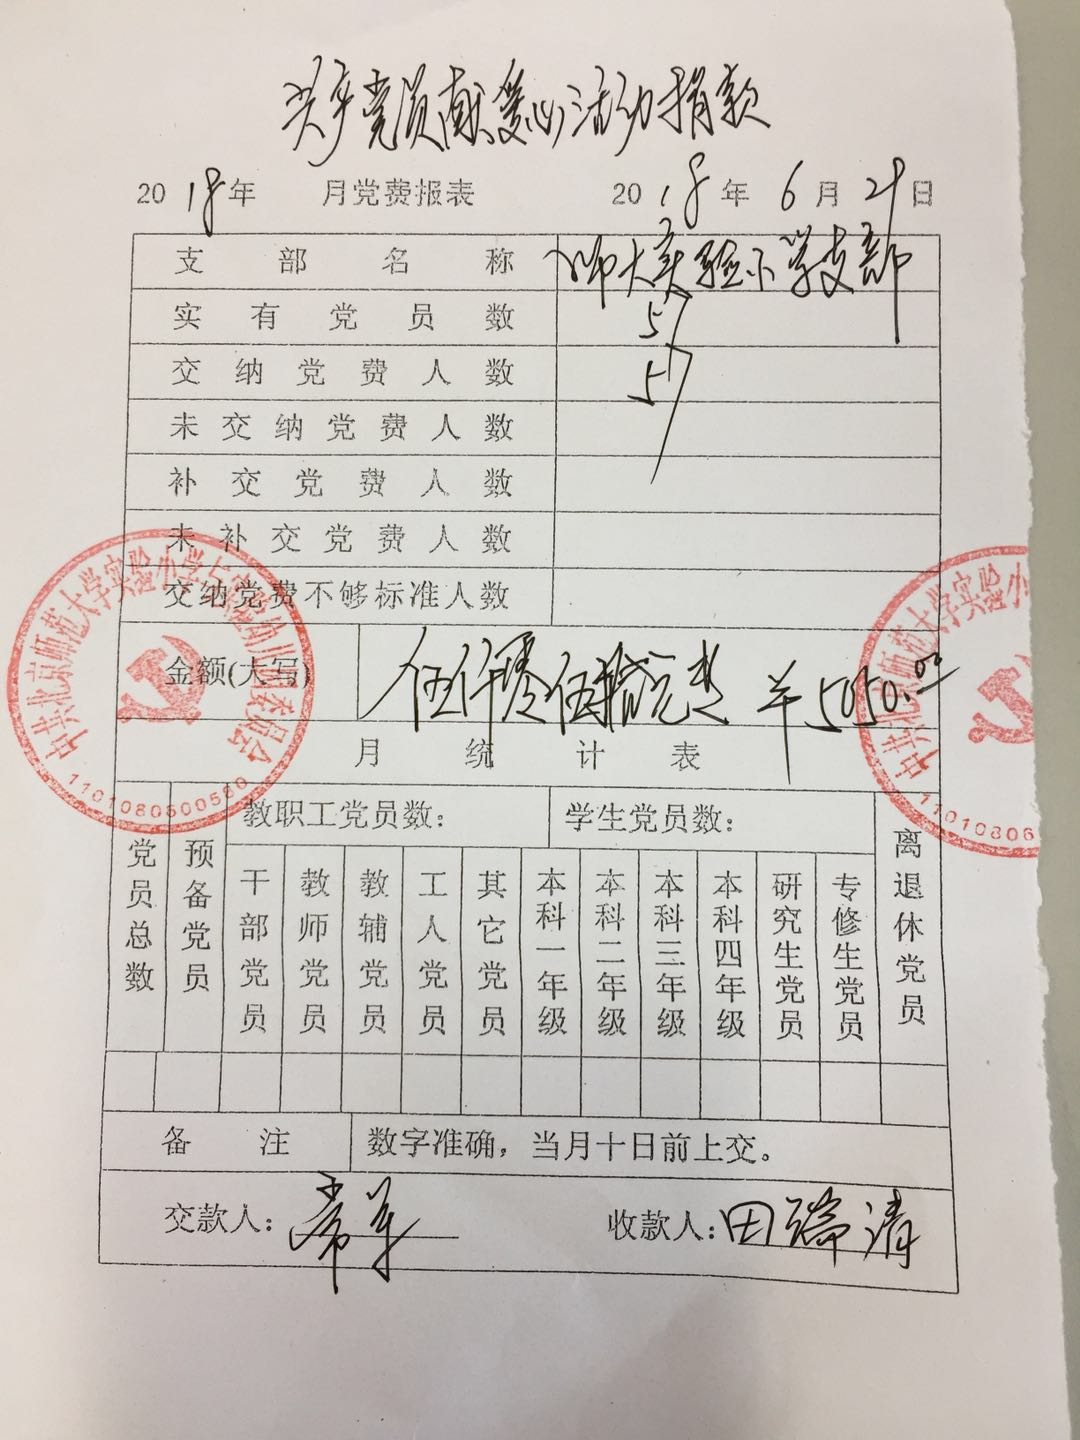 共产党员献爱心活动捐款
2018年 月党费报表 2018年6月29日
支部名称 师大实验小学支部
实有党员数 57
交纳党费人数 57
未交纳党费人数
补交党费人数
未补交党费人数
交纳党费不够标准人数
金额(大写) 伍仟零伍拾元整 ¥5050.00
月统计表
党员总数
预备党员
教职工党员数:
学生党员数:
离退休党员
干部党员
教师党员
教辅党员
工人党员
其它党员
本科一年级
本科二年级
本科三年级
本科四年级
研究生党员
专修生党员
备注 数字准确，当月十日前上交。
交款人: 常军 收款人: 田瑞清
1101080600560